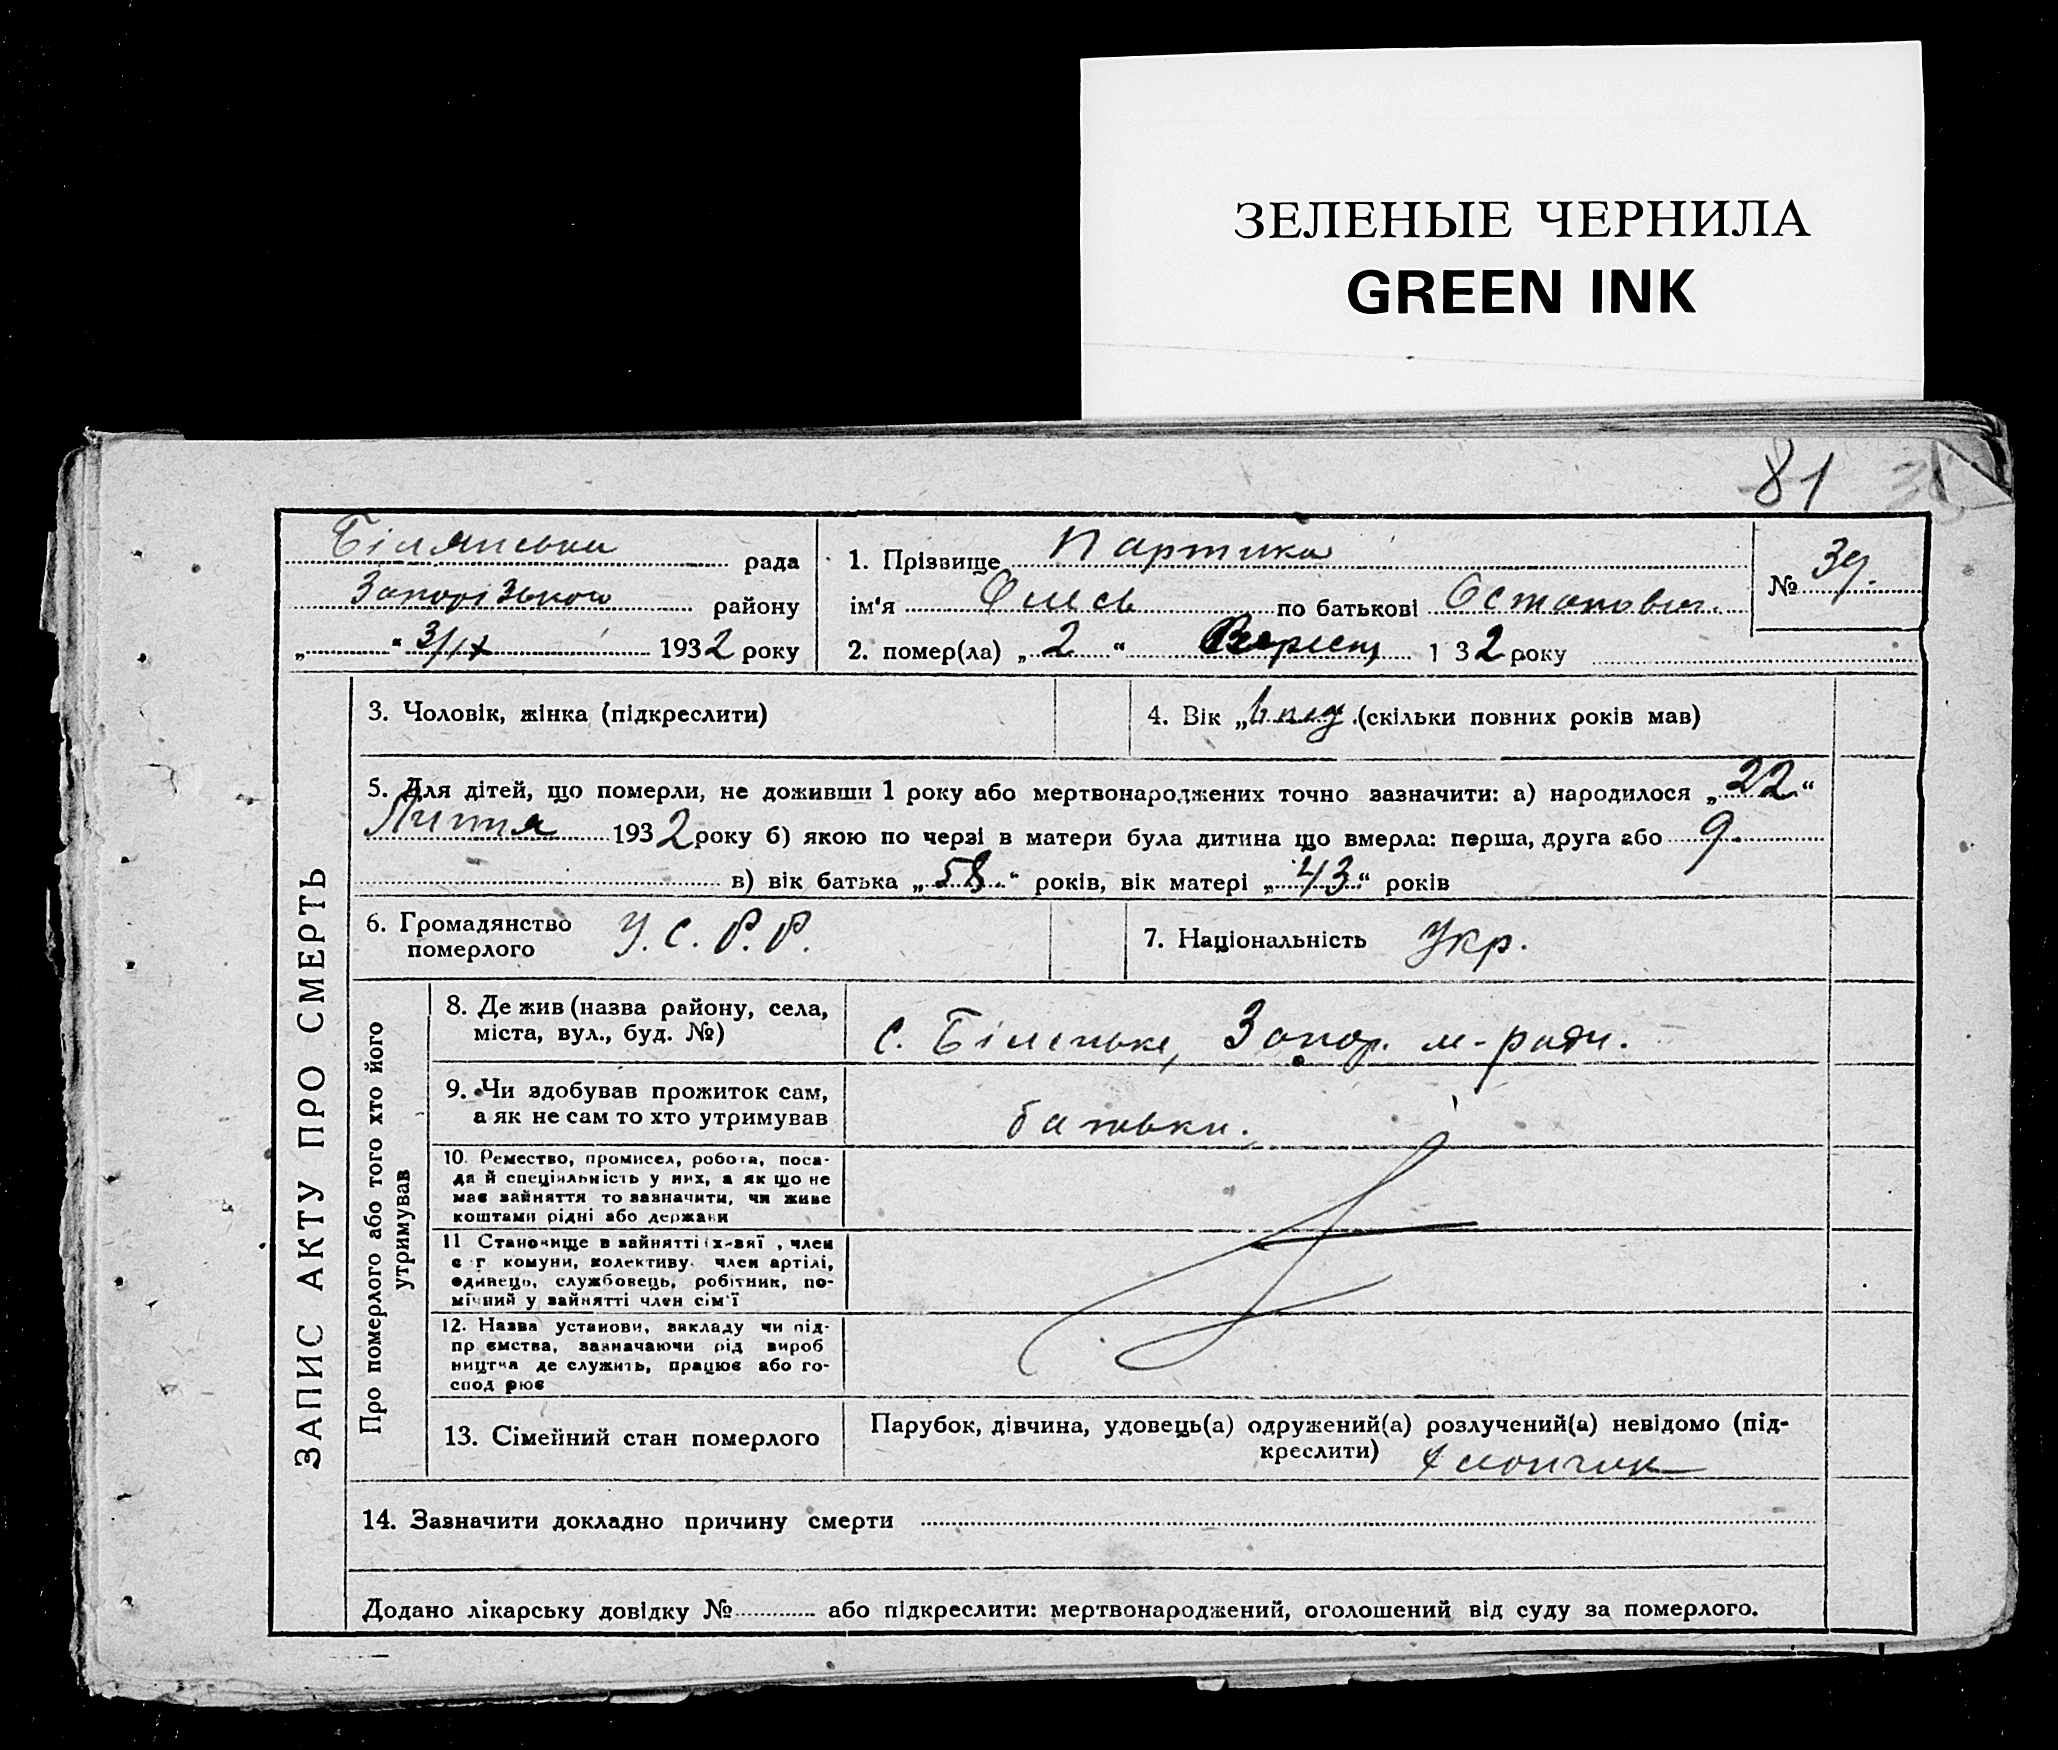 ЗЕЛЕНЫЕ ЧЕРНИЛА
GREEN INK
81
Білянська рада
Запорізького району
„ “ 3/IX 1932 року
1. Прізвище Партика
ім'я Олесь по батькові Остапович
2. помер(ла) „2“ Вересня 1 32 року
№ 39.
ЗАПИС АКТУ ПРО СМЕРТЬ
3. Чоловік, жінка (підкреслити)
4. Вік „6 нед. (скільки повних років мав)
5. Для дітей, що померли, не доживши 1 року або мертвонароджених точно зазначити: а) народилося „22“
Липня 1932 року б) якою по черзі в матери була дитина що вмерла: перша, друга або 9.
в) вік батька „58“ років, вік матері „43“ років
6. Громадянство У.С.Р.Р.
померлого
7. Національність Укр.
Про померлого або того хто його
утримував
8. Де жив (назва району, села,
міста, вул., буд. №)
с. Біленьке, Запор. м-ради.
9. Чи здобував прожиток сам,
а як не сам то хто утримував
батьки.
10. Ремество, промисел, робота, поса-
да й спеціяльність у них, а як що не
має зайняття то зазначити, чи живе
коштами рідні або держави
11 Становище в зайнятті (х-зяї , член
с г комуни, колективу. член артілі,
одинець, службовець, робітник, по-
мічний у зайнятті член сім'ї
12. Назва установи, закладу чи під-
пр ємства, зазначаючи рід вироб
ництва де служить, працює або го-
спод рює
13. Сімейний стан померлого
Парубок, дівчина, удовець(а) одружений(а) розлучений(а) невідомо (під-
креслити) хлопчик
14. Зазначити докладно причину смерти
Додано лікарську довідку № або підкреслити: мертвонароджений, оголошений від суду за померлого.